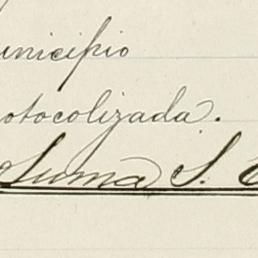 unicipio
otocolizada.
Suma S.